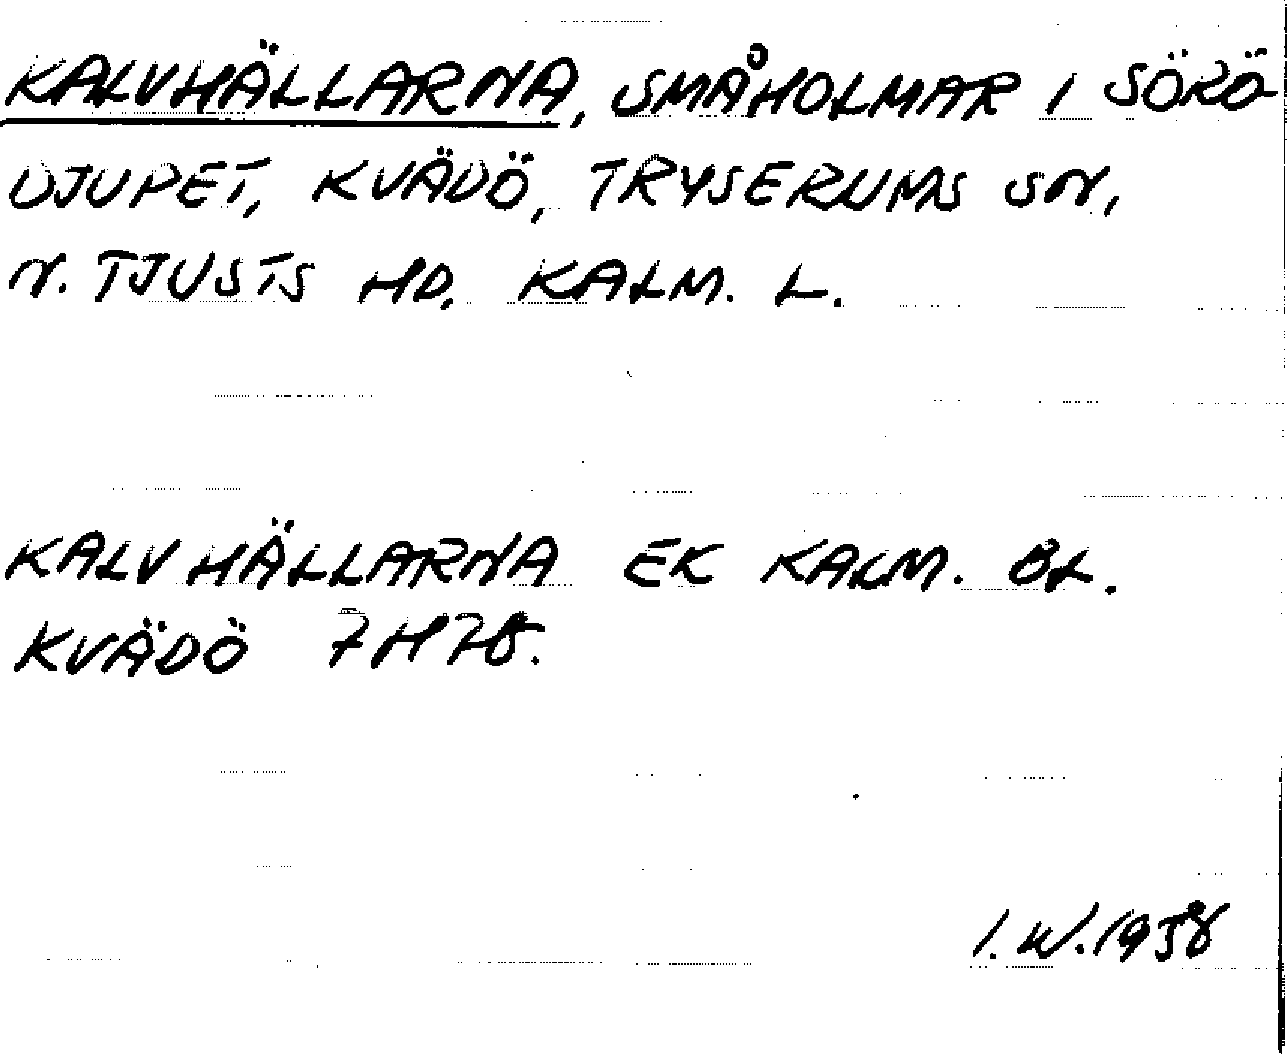 KALVHÄLLARNA, SMÅHOLMAR I SÖRÖ-
DJUPET, KVÄDÖ, TRYSERUMS SN,
N. TJUSTS HD, KALM. L.
KALVHÄLLARNA EK KALM. BL.
KVÄDÖ 7H78.
I.W.1958